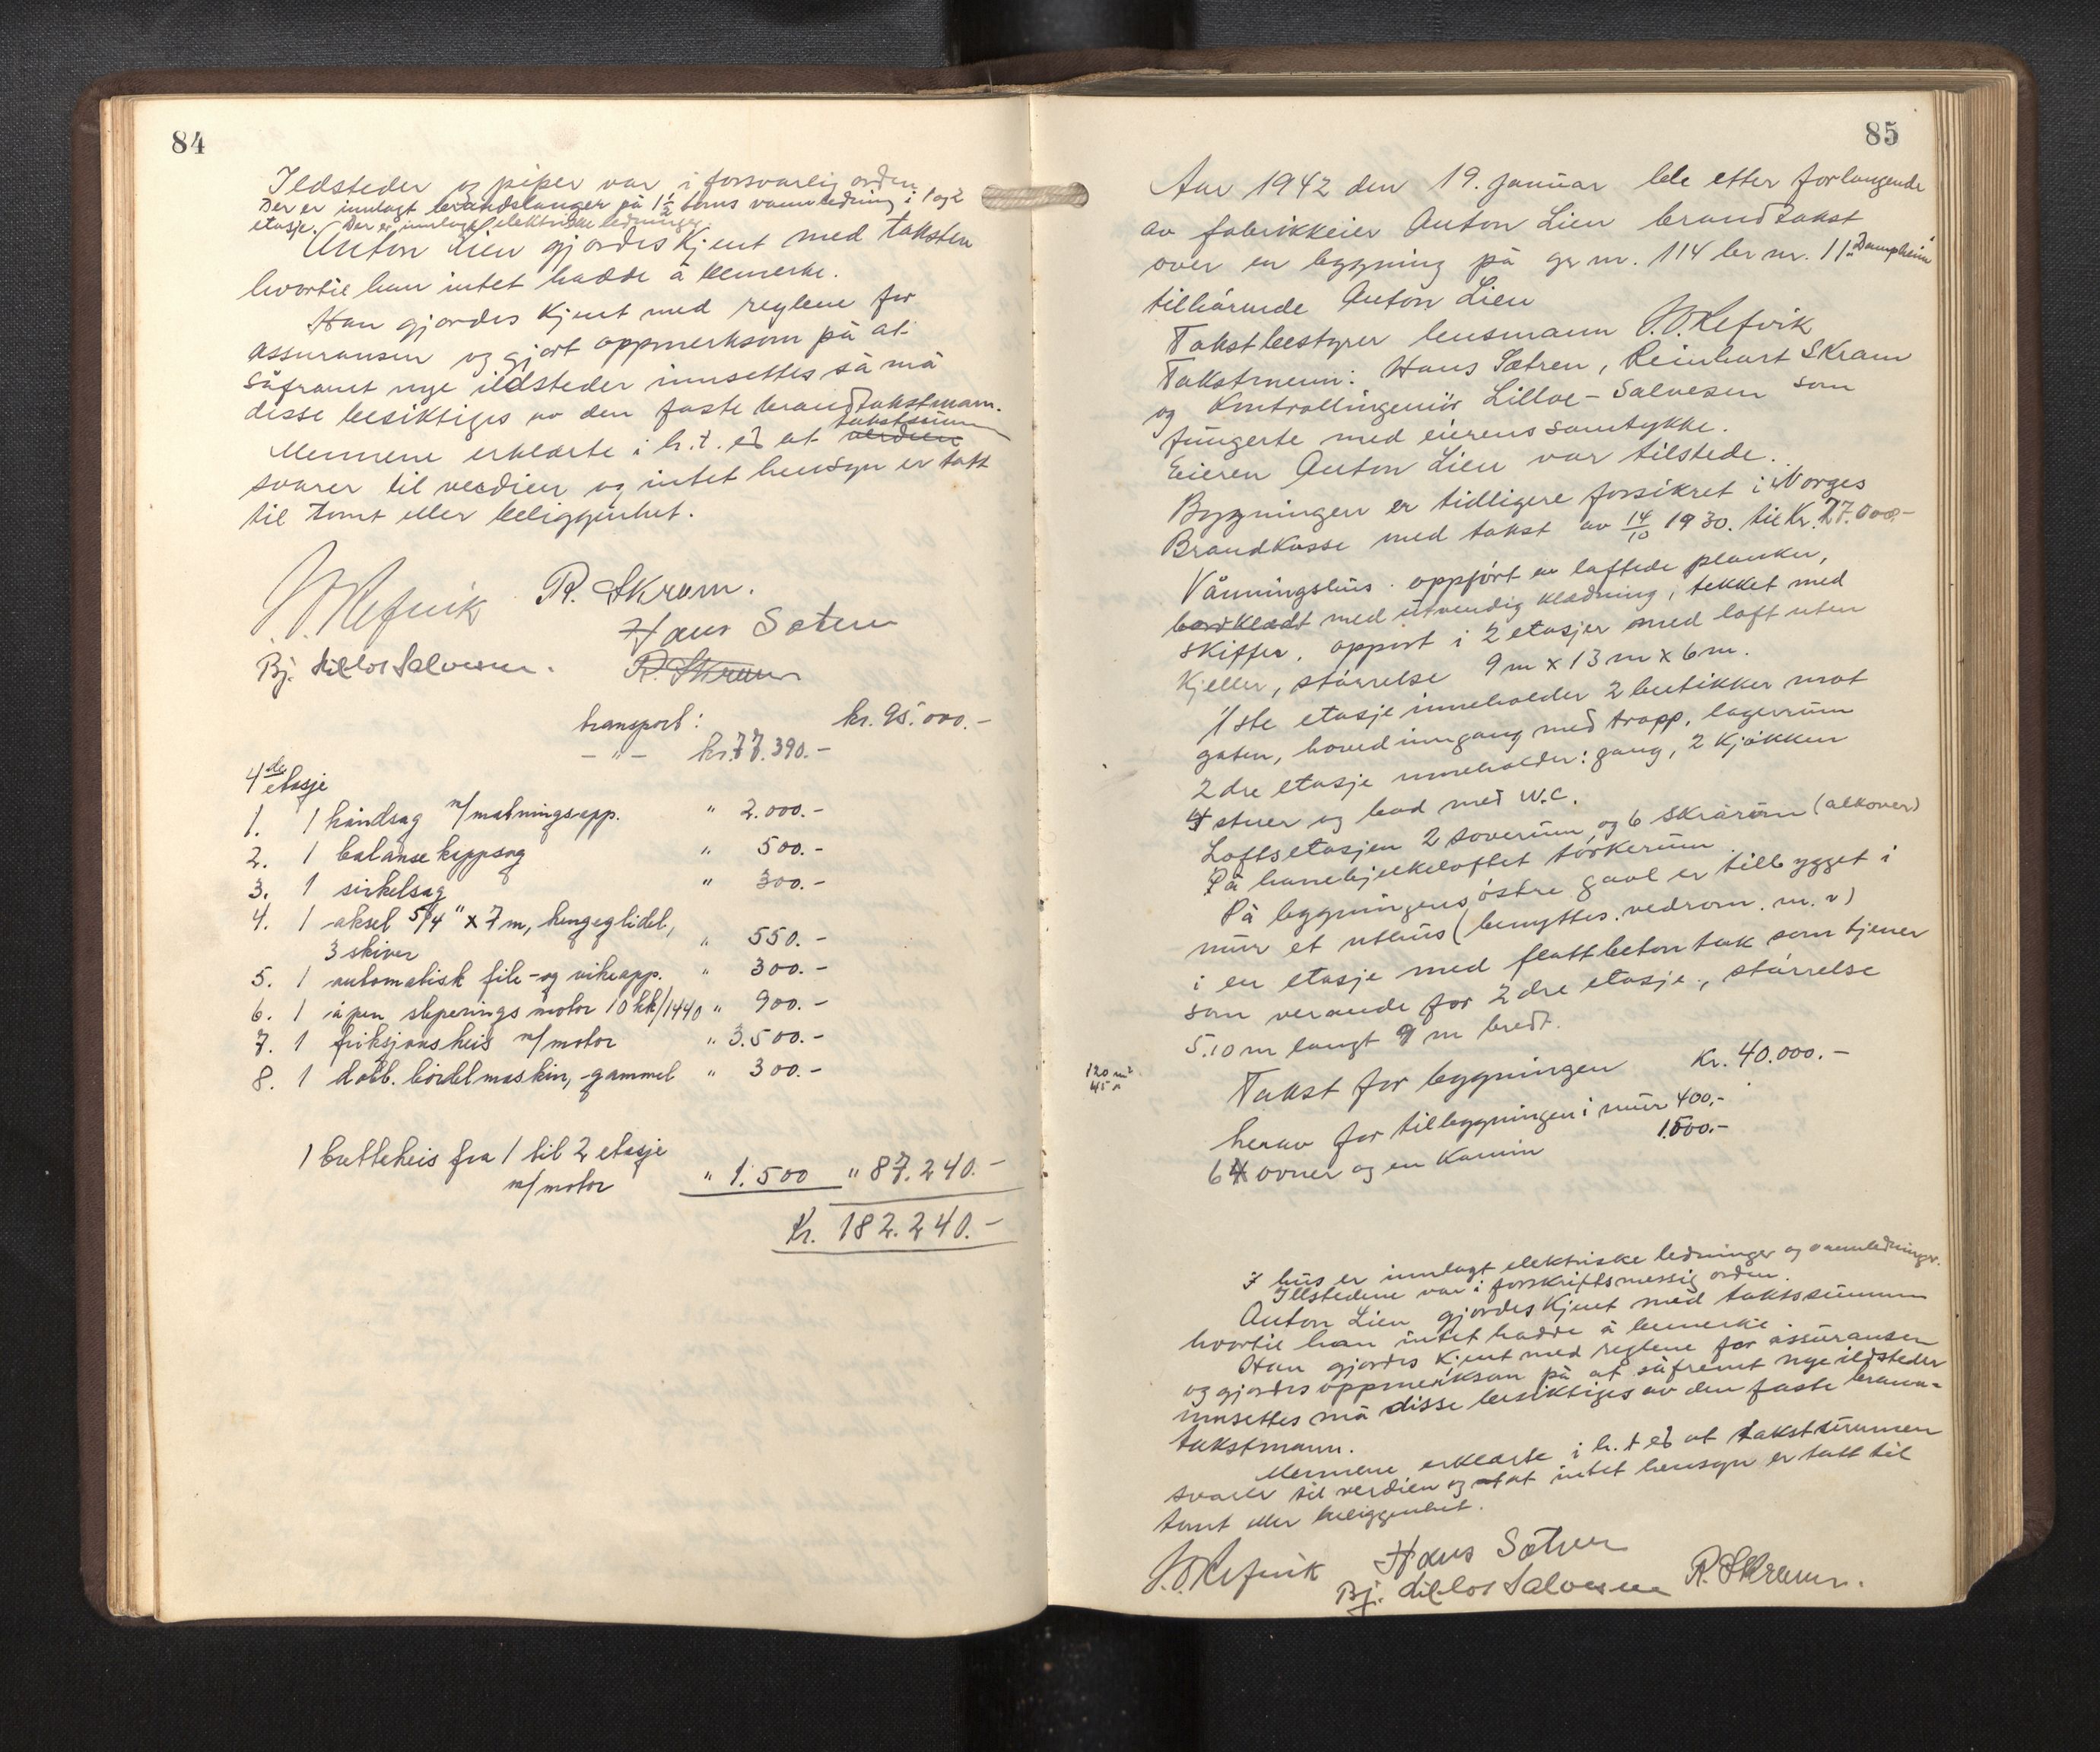 84
Ildsteder og piper var i forsvarlig orden
Der er innlagt brandslanger på 1 1/2 toms vannledning i 1 og 2
etasje. Der er innlagt elektriske ledninger.
Anton Lien gjordes kjent med taksten
hvortil han intet hadde å bemerke.
Han gjordes kjent med reglene for
assuransen og gjort oppmerksom på at
såframt nye ildsteder innsettes så må
disse besiktiges av den faste brandtakstmann.
takstsummen
Mennene erklærte i h.t. ed at verdien
svarer til verdien og intet hensyn er tatt
til tomt eller beliggenhet.
R. Skram.
Hans Sætren
Bj. Lilloe Salvesen. R. Skram
transport: kr. 95.000.-
- " - kr. 77.390.-
4de etasje
1. 1 båndsag m/matningsapp. " 2.000.-
2. 1 balanse kappsag " 500.-
3. 1 sirkelsag " 300.-
4. 1 aksel 5/4" x 7 m, hengeglidel,
3 skiver " 550.-
5. 1 automatisk file- og vikeapp. " 300.-
6. 1 åpen sleperings motor 10 hk/1440 " 900.-
7. 1 friksjonsheis m/motor " 3.500.-
8. 1 dobb. bördelmaskin, -gammel " 300.-
1 bøtteheis fra 1 til 2 etasje
m/motor " 1.500 " 87.240.-
Kr. 182.240.-
85
Aar 1942 den 19. januar ble etter forlangende
av fabrikkeier Anton Lien brandtakst
over en bygning på gr nr. 114 br nr. 11 "Dampheim"
tilhørende Anton Lien
Takstbestyrer lensmann J. O. Refvik
Takstmenn: Hans Sætren, Reinhart Skram
og Kontrollingeniør Lilloe-Salvesen som
fungerte med eierens samtykke.
Eieren Anton Lien var tilstede.
Bygningen er tidligere forsikret i Norges
Brandkasse med takst av 14/10 1930. til Kr. 27.000.-
Våningshus oppført av laftede planker,
bordklædt med utvendig klædning, tekket med
skiffer, oppført i 2 etasjer med loft uten
Kjeller, størrelse 9 m x 13 m x 6 m.
1ste etasje inneholder 2 butikker mot
gaten, hovedinngang med trapp, lagerrum
2dre etasje inneholder: gang, 2 kjøkken
4 stuer og bad med W.C.
Loftsetasjen 2 soverum, og 6 skrårum (alkover)
På hanebjelkeloftet tørkerum
På bygningens østre gavl er tilbygget i
mur et uthus (benyttes. vedrom. m. v)
i en etasje med flatt betontak som tjener
som veranda for 2dre etasje., størrelse
5.10 m langt 9 m bredt.
120 m²
45 "
Takst for bygningen Kr. 40.000.-
herav for tilbygningen i mur 400,-
6 4 ovner og en Kamin 1.500.-
I hus er innlagt elektriske ledninger og vannledninger.
Illstedene var i forskriftsmessig orden.
Anton Lien gjordes kjent med takssummen
hvortil han intet hadde å bemerke.
Han gjordes kjent med reglene for assuransen
og gjordes oppmerksom på at såfremt nye ildsteder
innsettes må disse besiktiges av den faste brann-
takstmann.
Mennene erklærte i h. t ed at takstsummen
svarer til verdien og at intet hensyn er tatt til
tomt eller beliggenhet.
J. O. Refvik Hans Sætren
Bj. Lilloe Salvesen R. Skram.